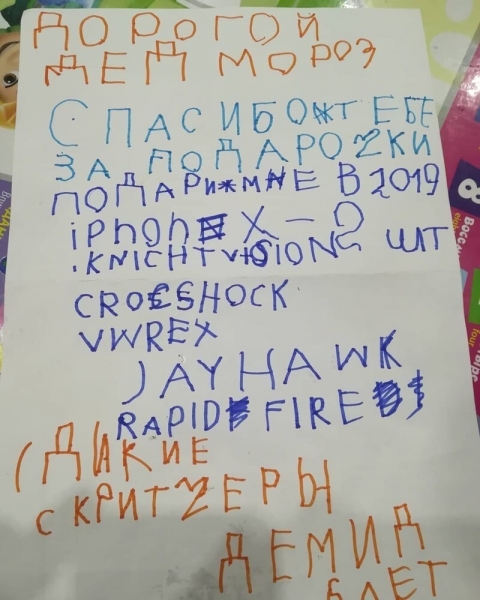 ДОРОГОЙ
ДЕД МОРОЗ
СПАСИБО ТЕБЕ
ЗА ПОДАРОЧКИ
ПОДАРИ МНЕ В 2019
iPhONE X - 2
ШТ
KNICHTVISION
CROSSHOCK
VWREX
JAYHAWK
RAPID FIRE
(ДИКИЕ
СКРИТЧЕРЫ
ДЕМИД
6 ЛЕТ